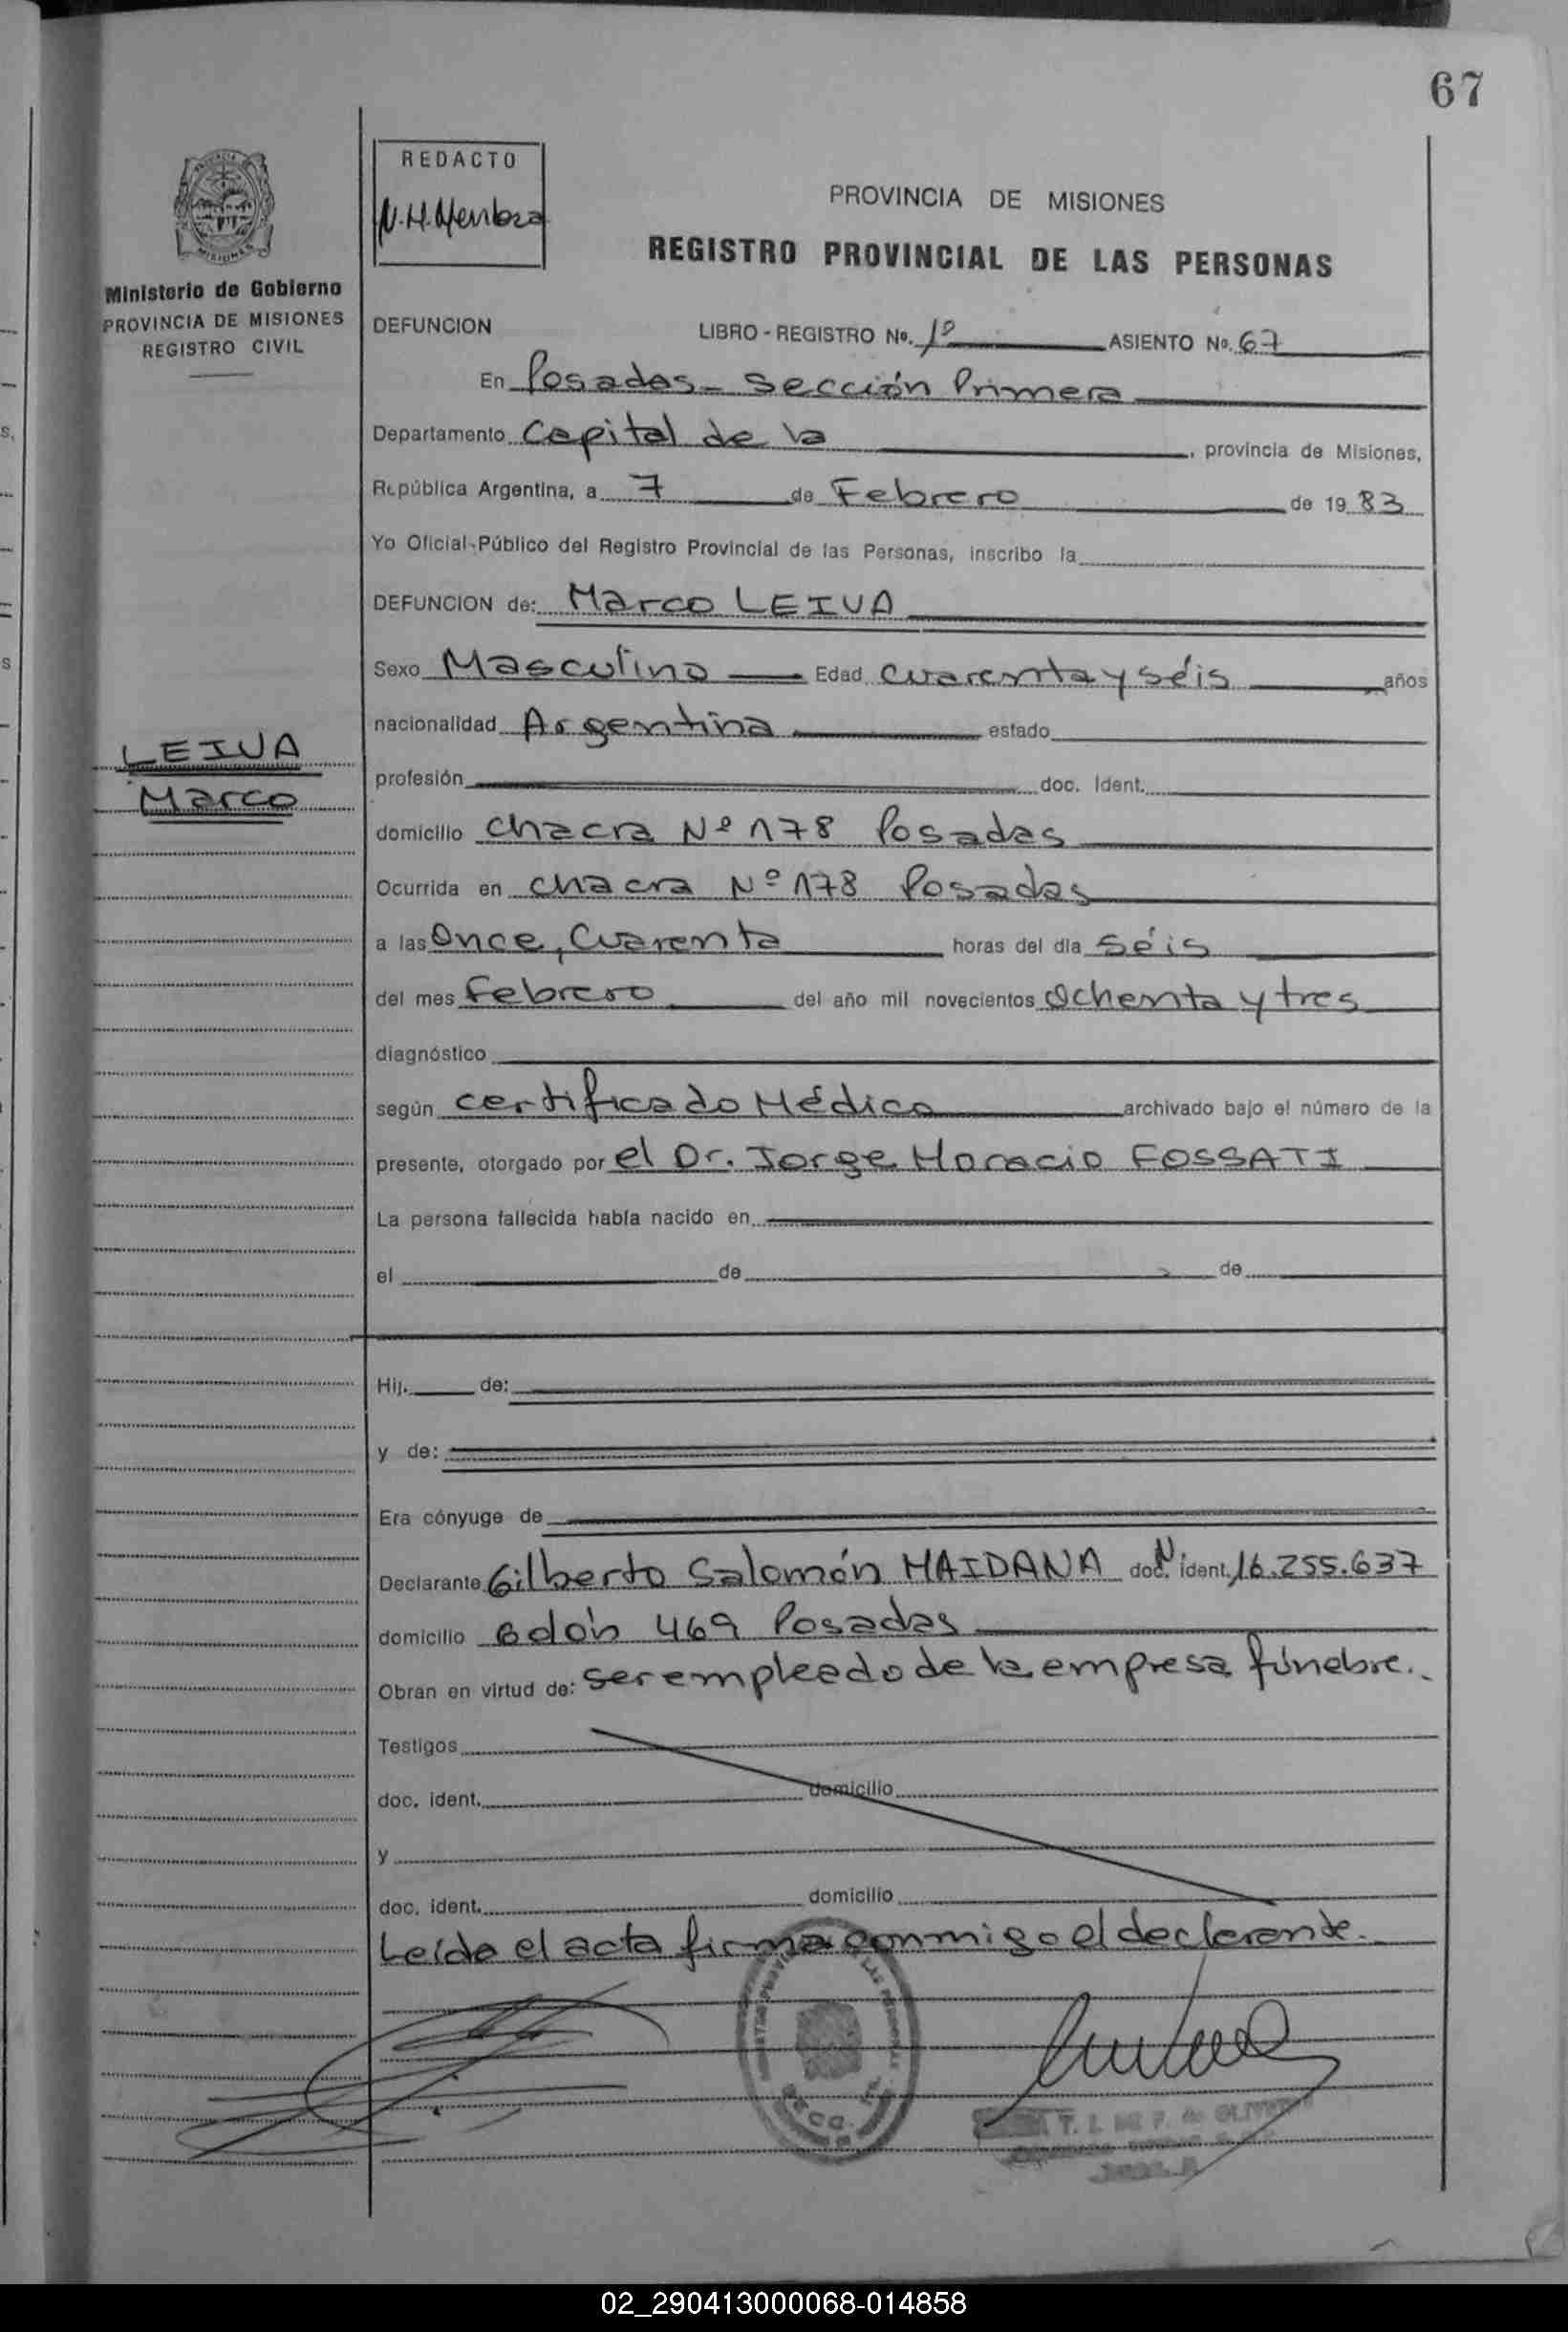 67
REDACTO
N.H.Mendoza
PROVINCIA DE MISIONES
REGISTRO PROVINCIAL DE LAS PERSONAS
MISIONES
Ministerio de Gobierno
PROVINCIA DE MISIONES
REGISTRO CIVIL
DEFUNCION LIBRO - REGISTRO No. 1º ASIENTO No. 67
En Posadas - Sección Primera
Departamento Capital de la, provincia de Misiones,
República Argentina, a 7 de Febrero de 1983
Yo Oficial Público del Registro Provincial de las Personas, inscribo la
DEFUNCION de: Marco LEIVA
Sexo Masculino Edad cuarenta y séis años
nacionalidad Argentina estado
LEIVA
Marco
profesión doc. Ident.
domicilio chacra Nº 178 Posadas
Ocurrida en chacra Nº 178 Posadas
a las Once, Cuarenta horas del día Séis
del mes Febrero del año mil novecientos Ochenta y tres
diagnóstico
según certificado Médico archivado bajo el número de la
presente, otorgado por el Dr. Jorge Horacio FOSSATI
La persona fallecida había nacido en
el de de
Hij. de:
y de:
Era cónyuge de
Declarante Gilberto Salomón MAIDANA doc. N ident. 16.255.637
domicilio 469 Posadas
Obran en virtud de: ser empleado de la empresa fúnebre.
Testigos
doc. ident. domicilio
y
doc. ident. domicilio
Leída el acta firma conmigo el declarante.
02_290413000068-014858